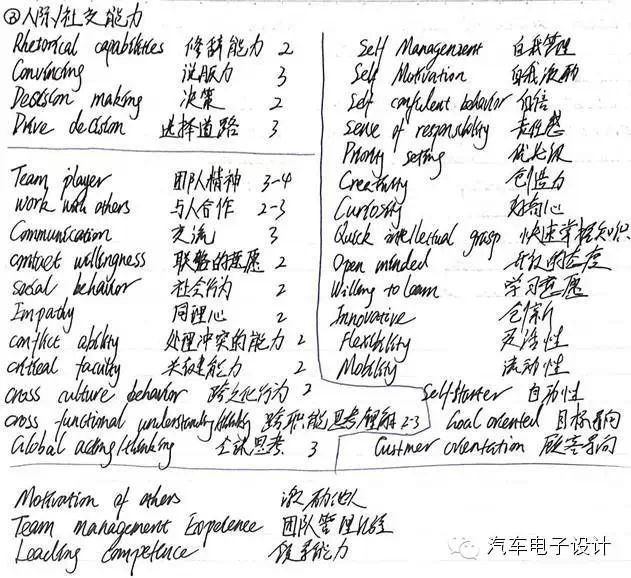 ③人际/社交能力
Rhetorical capabilities 修辞能力 2
Convincing 说服力 3
Decision making 决策 2
Drive decision 选择道路 3
Team player 团队精神 3-4
Work with others 与人合作 2-3
Communication 交流 3
contact willingness 联络的意愿 2
social behavior 社会行为 2
Empathy 同理心 2
conflict ability 处理冲突的能力 2
critical faculty 关键能力 2
cross culture behavior 跨文化行为 2
cross functional understanding/thinking 跨职能思考理解 2-3
Global acting/thinking 全球思考 3
Self Management 自我管理
Self Motivation 自我激励
Self confident behavior 自信
Sense of responsibility 责任感
Priority setting 优先级
Creativity 创造力
Curiosity 好奇心
Quick intellectual grasp 快速掌握知识
Open minded 开放的态度
Willing to learn 学习意愿
Innovative 创新
Flexibility 灵活性
Mobility 流动性
Selfstarter 自动性
Goal oriented 目标导向
Custmer orientation 顾客导向
Motivation of others 激励他人
Team management Experience 团队管理经验
Leading competence 领导能力
汽车电子设计